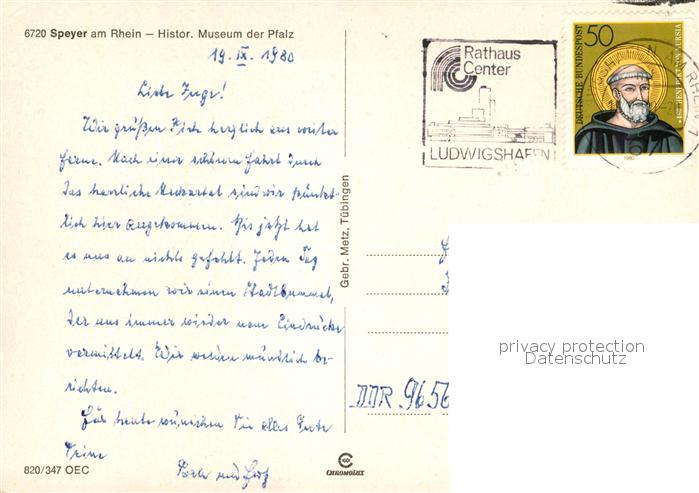 6720 Speyer am Rhein – Histor. Museum der Pfalz
19. IX. 1980
Liebe Inge!
Wir grüßen Dich herzlich aus weiter
Ferne. Nach einer schönen Fahrt durch
das herrliche Neckartal sind wir pünkt-
lich hier angekommen. Bis jetzt hat
es uns an nichts gefehlt. Jeden Tag
unternehmen wir einen Stadtbummel,
der uns immer wieder neue Eindrücke
vermittelt. Wir werden mündlich be-
richten.
Für heute wünschen Dir alles Gute
Deine
und
820/347 OEC
Gebr. Metz, Tübingen
CHROMOLUX
Rathaus
Center
LUDWIGSHAFEN
DEUTSCHE BUNDESPOST
50
1980
DDR 9656
privacy protection
Datenschutz